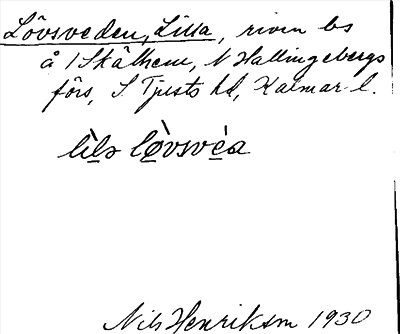 Lövsveden, Lilla, riven bs
å 1 Skälhem, N Hallingebergs
förs, S Tjusts hd, Kalmar l.
lìls lòvsvéa
Nils Henrikson 1930